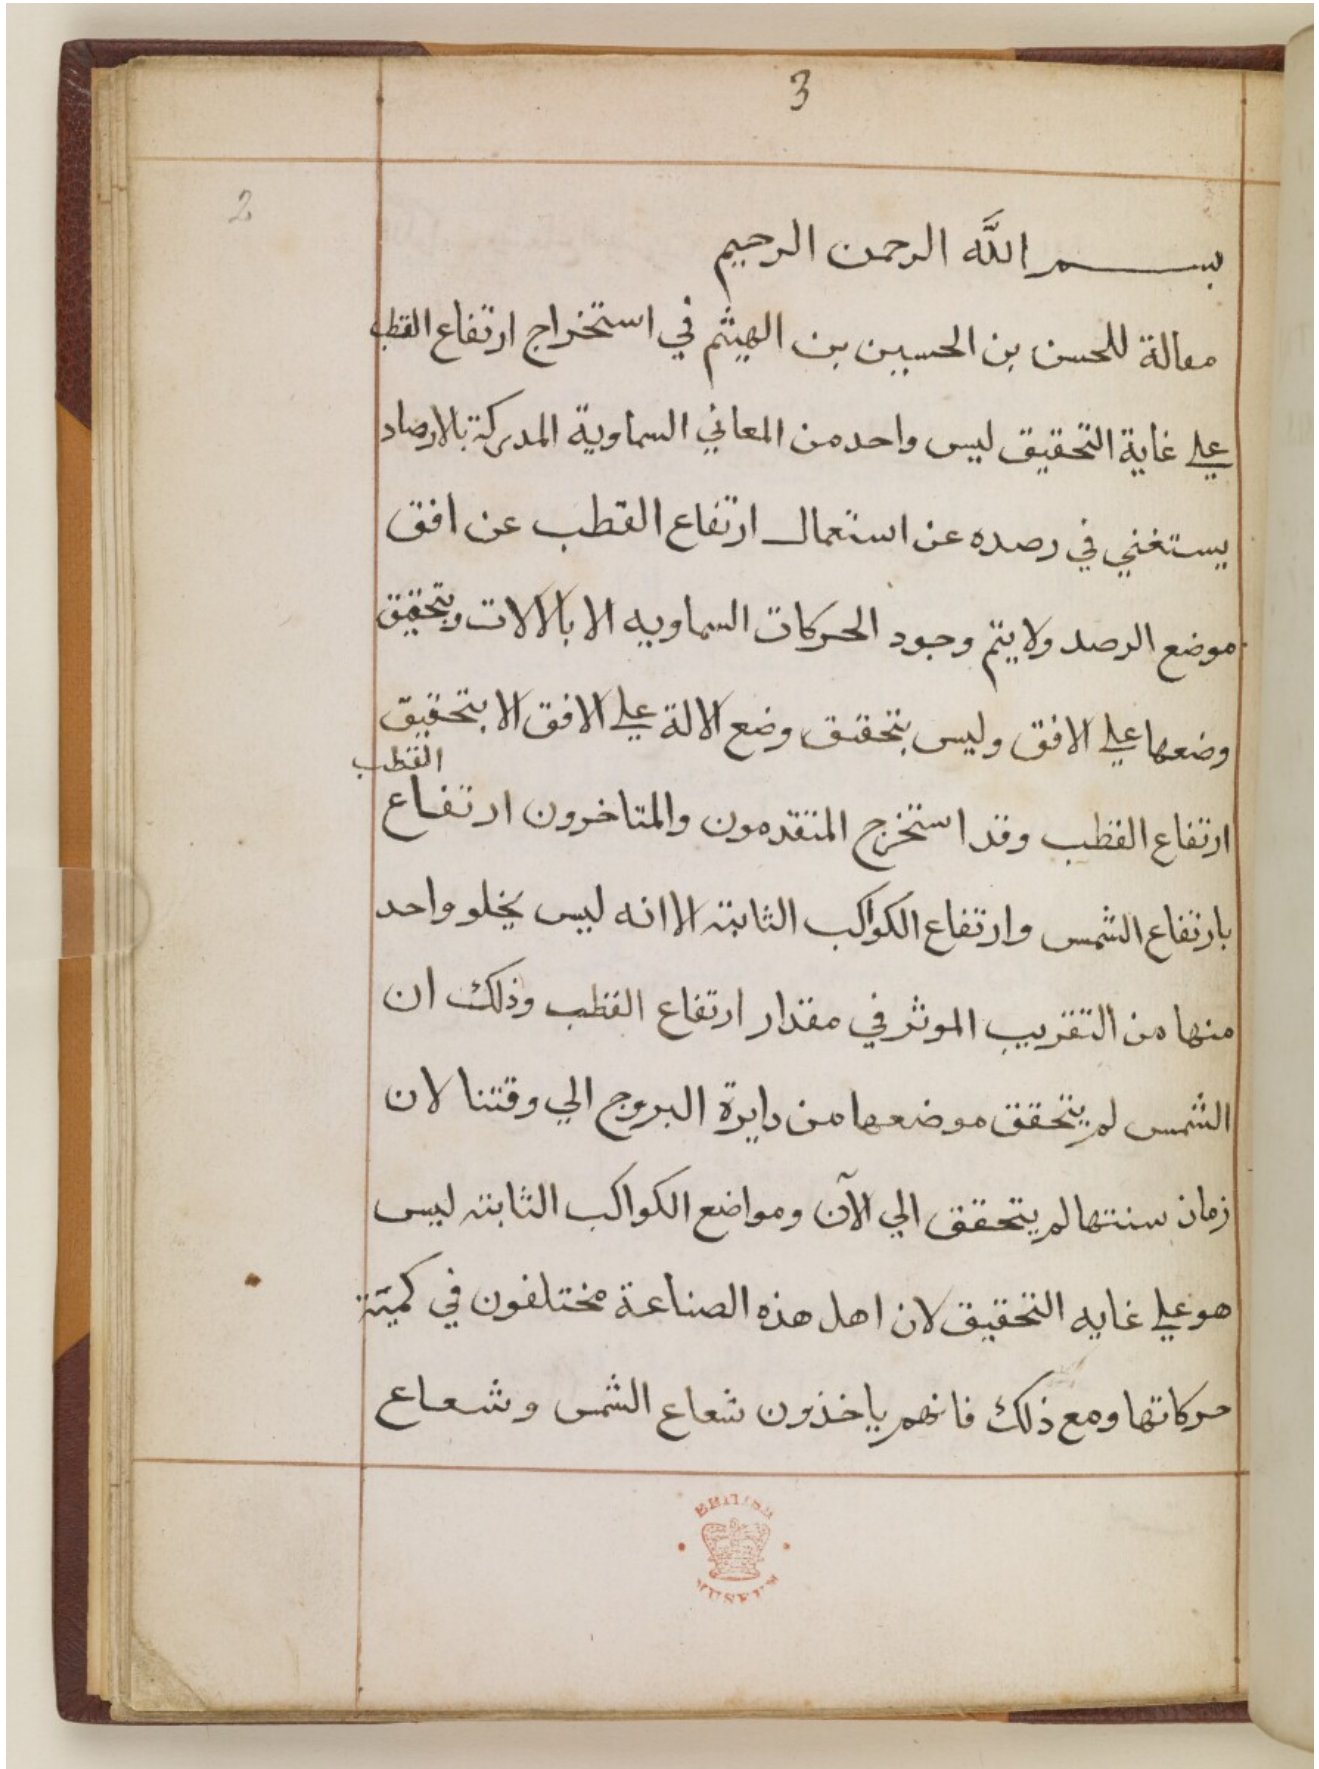 3
2
بسم الله الرحمن الرحيم
مقالة للحسن بن الحسين بن الهيثم في استخراج ارتفاع القطب
علي غاية التحقيق ليس واحد من المعاني السماوية المدركة بالارصاد
يستغني في رصده عن استعمال ارتفاع القطب عن افق
موضع الرصد ولا يتم وجود الحركات السماويه الا بالالات وبتحقيق
وضعها علي الافق وليس بتحقيق وضع الالة علي الافق الا بتحقيق
القطب
ارتفاع القطب وقد استخرج المتقدمون والمتاخرون ارتفاع
بارتفاع الشمس وارتفاع الكواكب الثابته الا انه ليس يخلو واحد
منها من التقريب الموثر في مقدار ارتفاع القطب وذلك ان
الشمس لم يتحقق موضعها من دايرة البروج الي وقتنا لان
زمان سنتها لم يتحقق الي الآن ومواضع الكواكب الثابته ليس
هو علي غايه التحقيق لان اهل هذه الصناعة مختلفون في كميّة
حركاتها ومع ذلك فانهم ياخذون شعاع الشمس وشعاع
BRITISH
MUSEUM